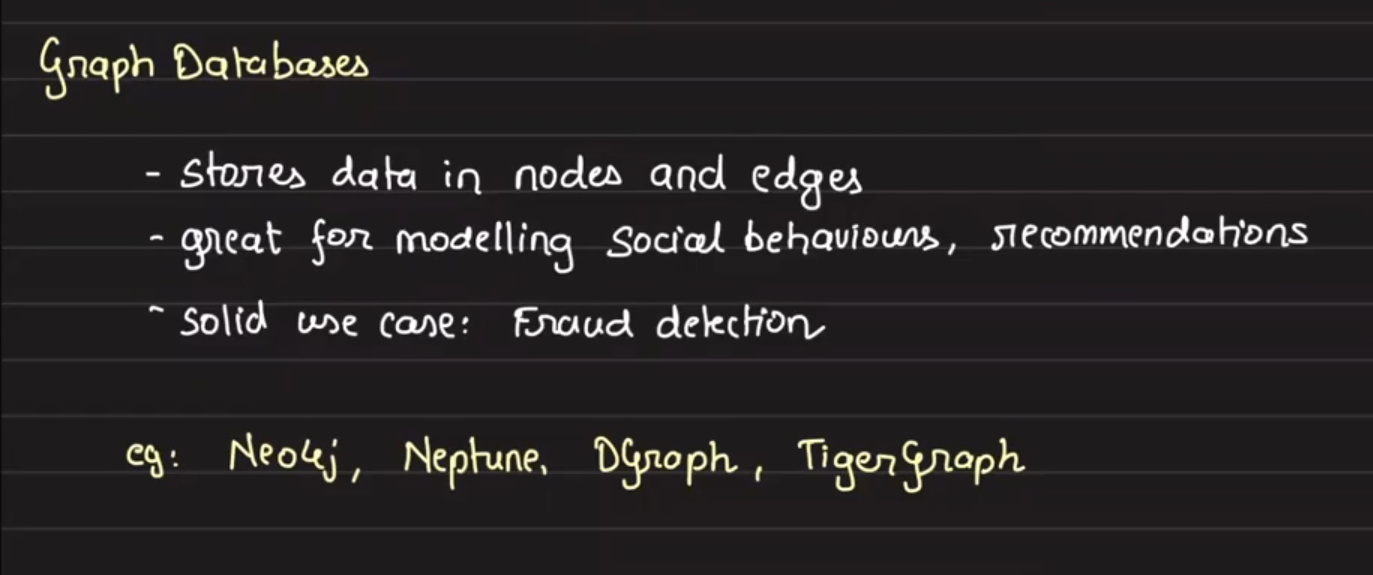 Graph Databases
- stores data in nodes and edges
- great for modelling social behaviours, recommendations
- solid use case: Fraud detection
eg: Neo4j, Neptune, DGraph, TigerGraph